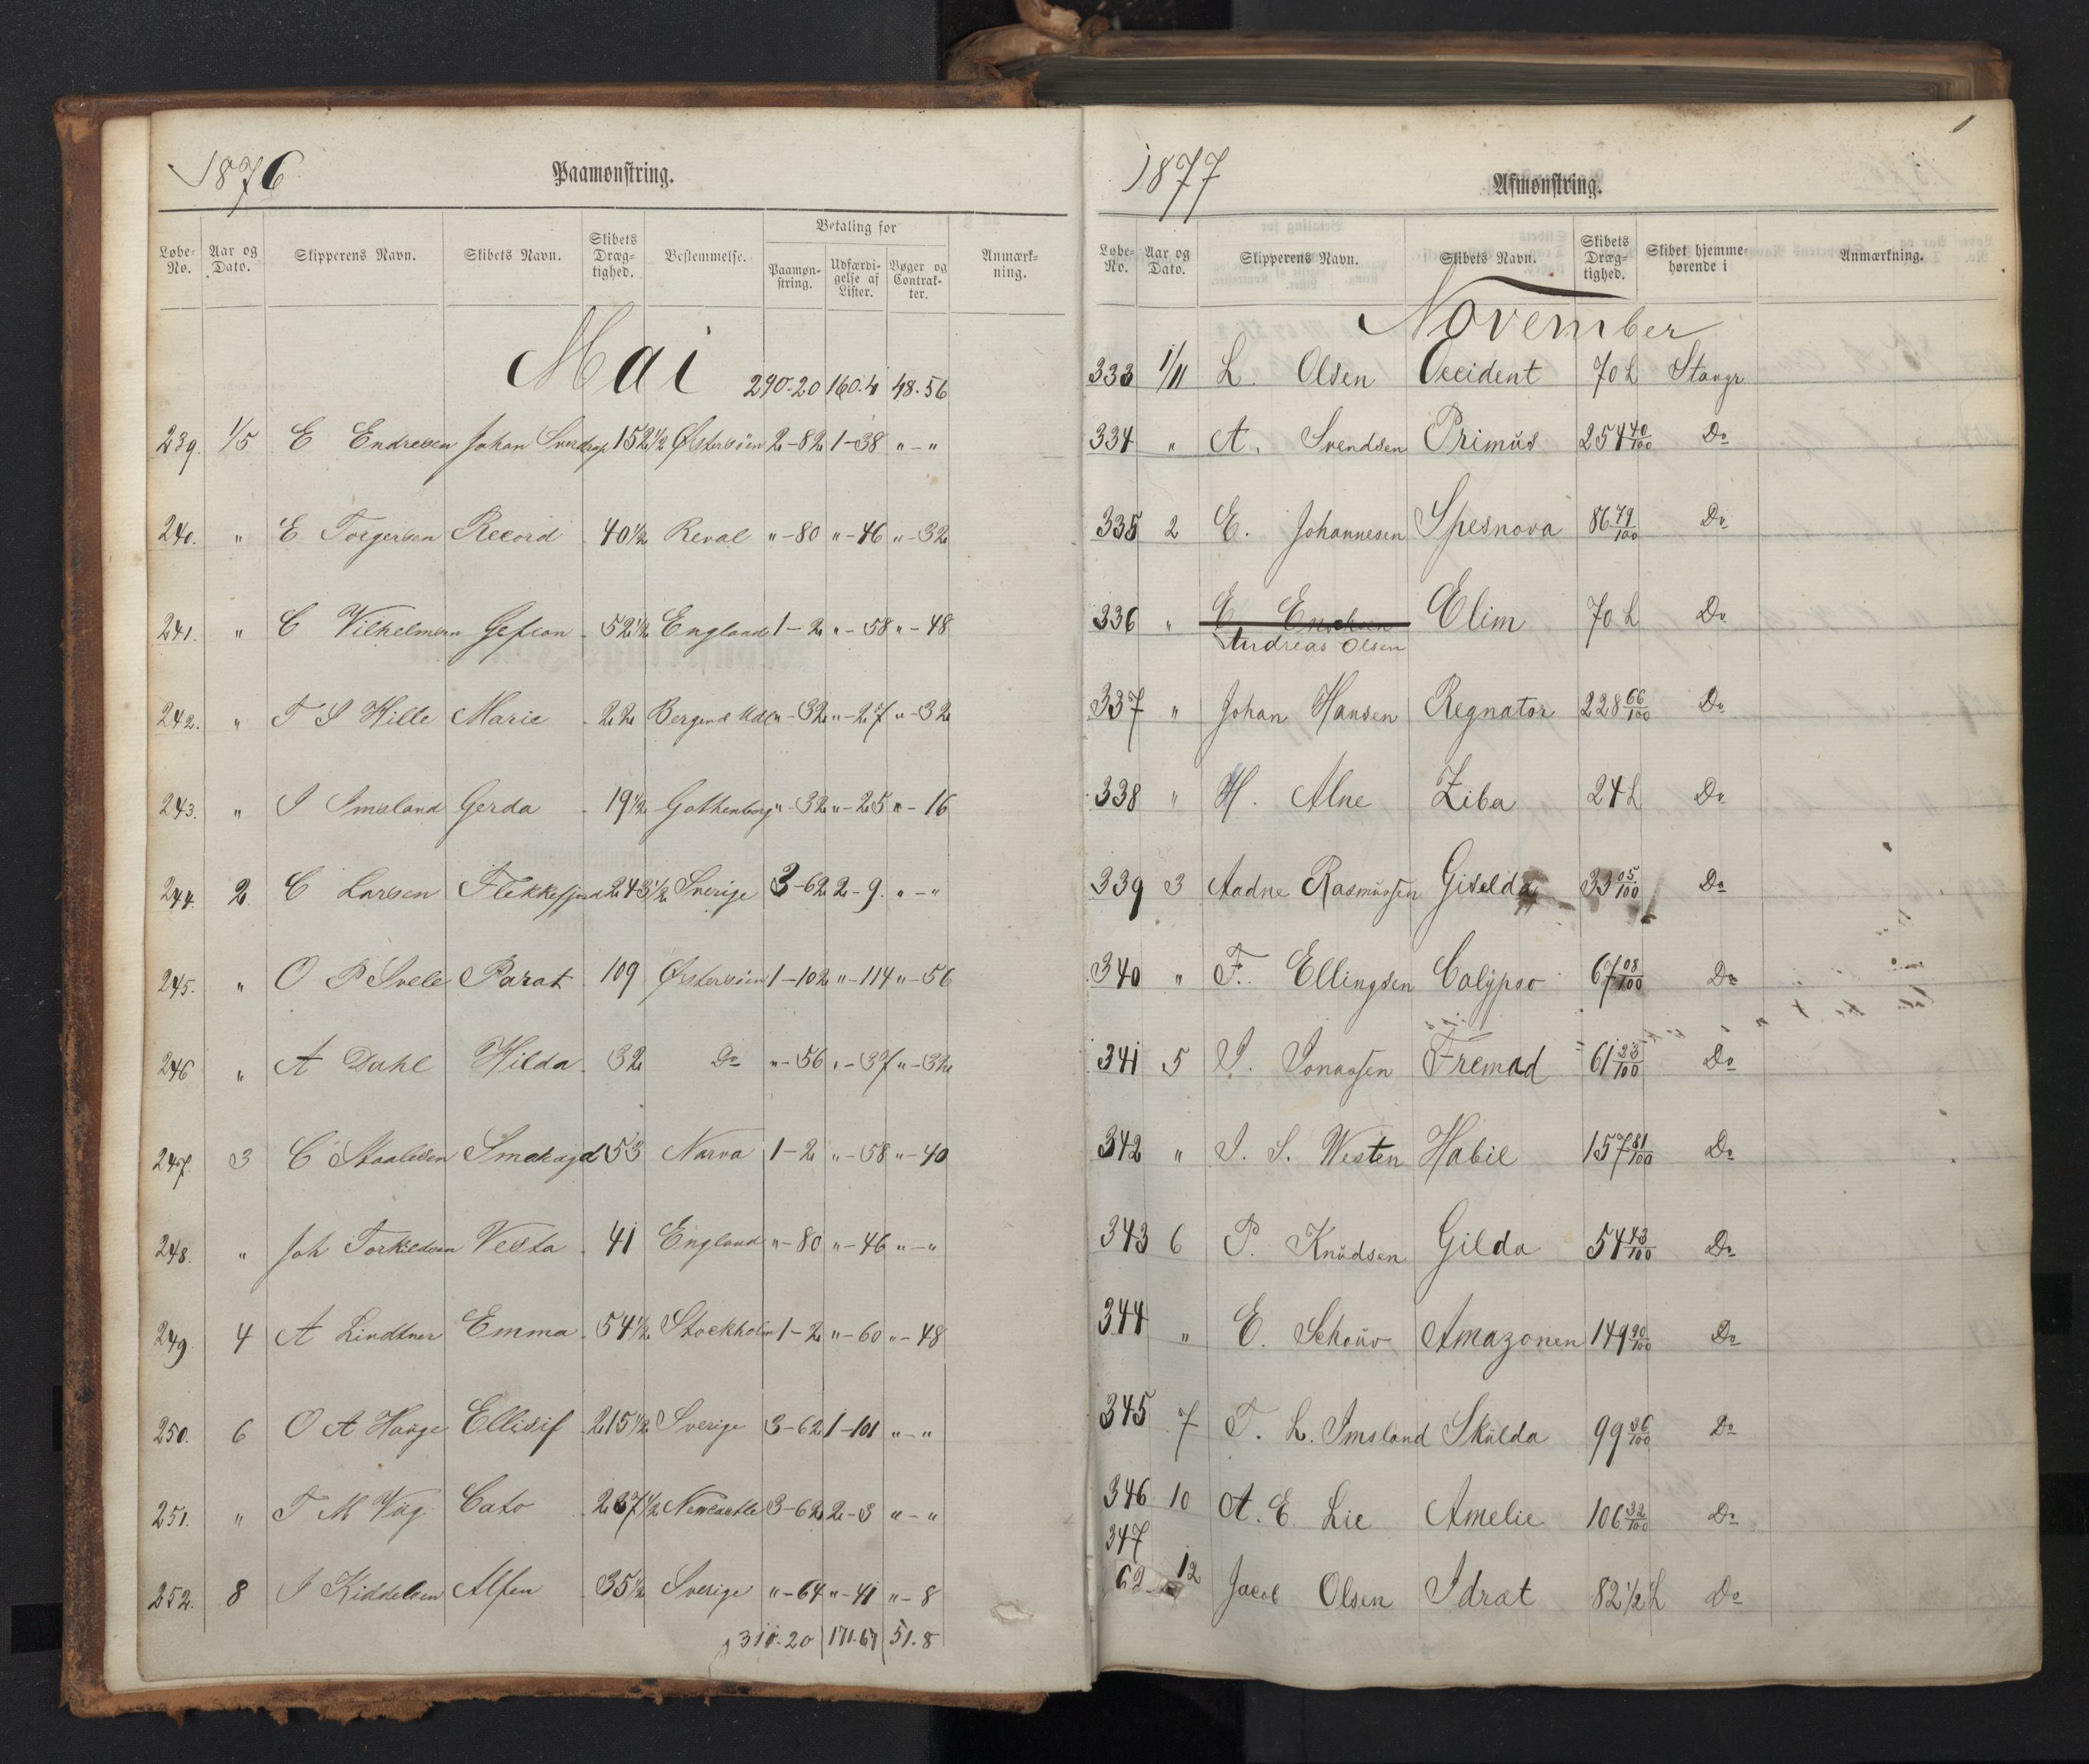 1876 Paamønstring.
Løbe-No. Aar og Dato. Skipperens Navn. Skibets Navn. Skibets Dræg-tighed. Bestemmelse. Betaling for Paamøn-string. Udfærdi-gelse af Lister. Bøger og Contrak-ter. Anmærk-ning.
Mai 290.20 160.4 48.56
239. 1/5 E Endresen Johan Sverdrup 152 1/2 Østersöen 2-82 1-38 "-"
240. " E Torgersen Record 40 1/2 Reval "-80 "-46 "-32
241. " C Vilhelmsen Gefion 52 1/2 England 1-2 "-58 "-48
242. " T S Hille Marie 22 Bergens "-32 "-27 "-32
243. " I Imsland Gerda 19 1/2 Gothenborg "-32 "-25 "-16
244. 2. C Larsen Flekkefjord 243 1/2 Sverige 3-62 2-9. "-"
245. " O P Svele Parat 109 Østersöen 1-102 "-114 "-56
246 " A Dahl Hilda 32 Do "-56 "-37 "-32
247. 3 C Staalesen Smakajd 53 Narva 1-2 "-58 "-40
248. " Joh Torkildsen Vesta 41 England "-80 "-46 "-"
249. 4 A Lindtner Emma 54 1/2 Stockholm 1-2 "-60 "-48
250. 6 O A Hauge Ellisif 215 1/2 Sverige 3-62 1-101 "-"
251. " T M Viig Cato 237 1/2 Newcastle 3-62 2-3 "-"
252. 8 I Kiddelsen Alfen 35 1/2 Sverige "-64 "-41 "-8
310.20 171.67 51.8
1
1877 Afmønstring.
Løbe-No. Aar og Dato. Skipperens Navn. Skibets Navn. Skibets Dræg-tighed. Skibet hjemme-hørende i Anmærkning.
November
333 1/11 L. Olsen Occident 70 L Stavgr
334 " A. Svendsen Primus 254 40/100 Do
335 2 E. Johannesen Spesnova 86 79/100 Do
336 " E. Elim 70 L Do
Andreas Olsen
337 " Johan Hansen Regnator 228 66/100 Do
338 " H. Alne Ziba 24 L Do
339 3 Aadne Rasmussen Giselda 33 05/100 Do
340 " F. Ellingsen Calypso 67 08/100 Do
341 5 I. Jonassen Fremad 61 23/100 Do
342 " I. S. Westen Habil 157 81/100 Do
343 6 P. Knudsen Gilda 54 43/100 Do
344 " E. Schouw Amazonen 149 90/100 Do
345 7 T. L. Imsland Skulda 99 36/100 Do
346 10 A. E. Lie Amelie 106 32/100 Do
347
62 12 Jacob Olsen Idræt 82 1/2 L Do